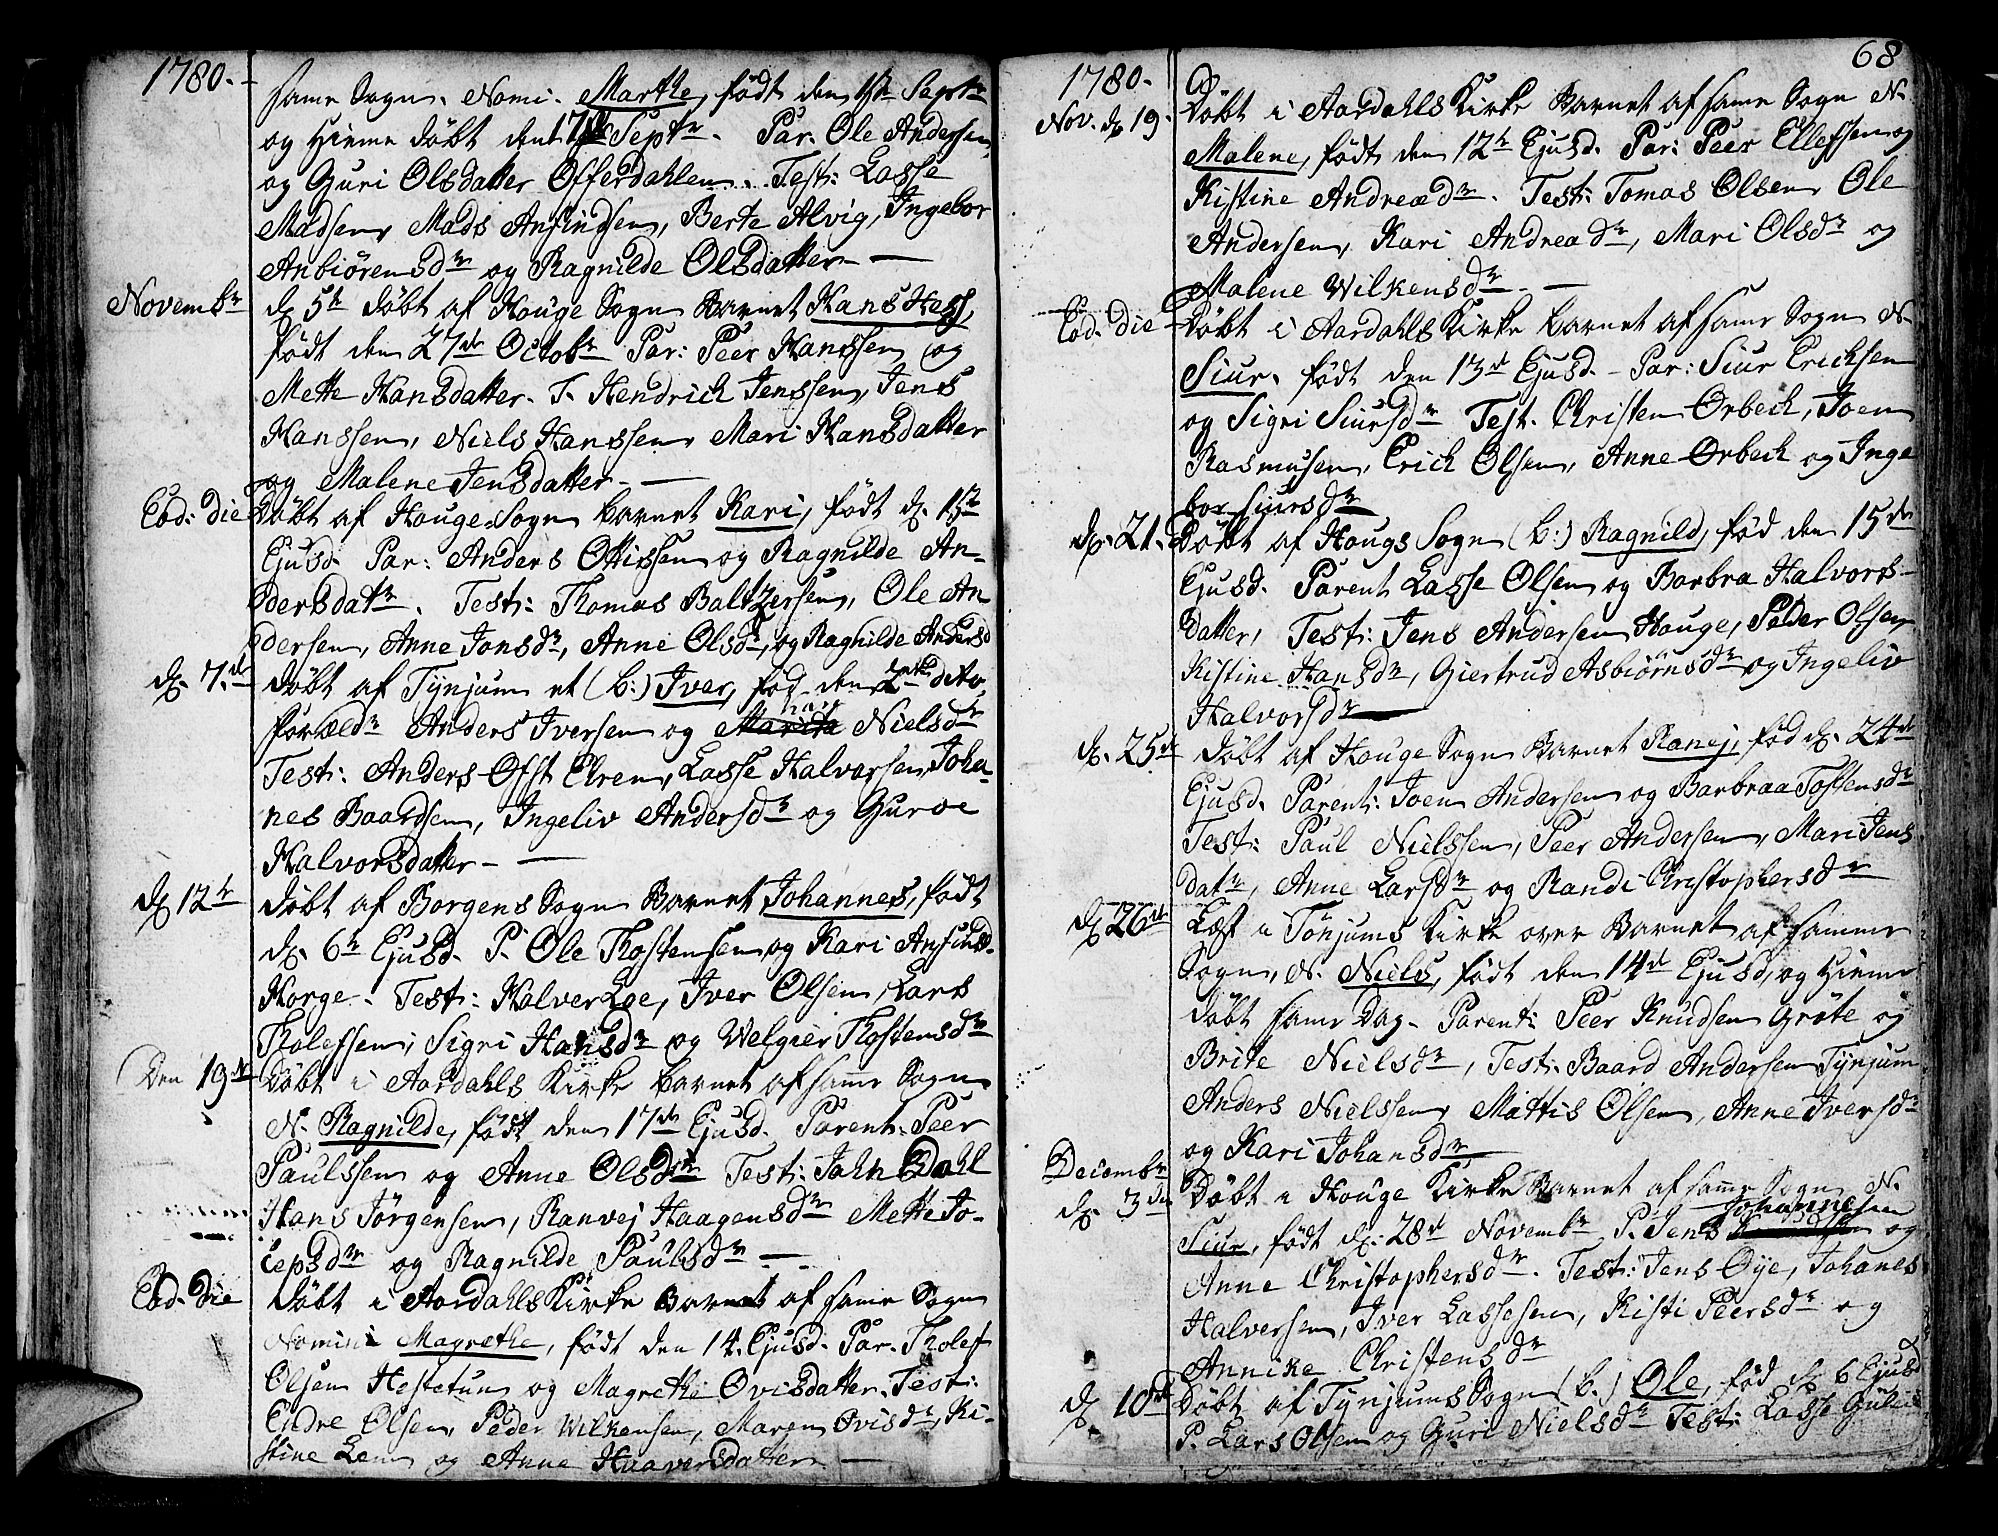 1780.
same Sogn. Nomi. Marthe, født den Septr
og Hieme døbt den 17 Septr. Par: Ole Andersen
og Guri Olsdatter Offerdahlen. Test: Lasse
Madsen, Mads Anfindsen, Berte Alvig, Ingebor
Anbiørensdr og Ragnilde Olsdatter
Novembr d. 5te døbt af Houge Sogn Barnet Hans Hess,
født den 27de Octobr Par: Peer Hanssen og
Mette Hansdatter. T. Hendrich Jenssen, Jens
Hanssen, Niels Hanssen, Mari Hansdatter
og Malene Jensdatter
Eod: die Døbt af Houge Sogn barnet Kari, født d. 1ste
Ejusd. Par: Anders Ottissen og Ragnilde An-
dersdatr. Test: Thomas Baltzersen, Ole An
dersen, Anne Jonsdr, Anne Olsdr, og Ragnilde Andersd
d. 7de døbt af Tynjum et (b:) Iver, fød den 2den
forældr Anders Iversen og Nielsdr
Test: Anders Offst Elren, Lasse Halvorsen, Joha-
nes Baardsen, Ingeliv Andersdr og Guroe
Halvorsdatter
d. 12te døbt af Borgens Sogn Barnet Johannes, født
d. 6te Ejusd. P. Ole Thostensen og Kari Anfinsd.
Horge. Test: Halver Loe, Iver Olsen, Lars
Tholefsen, Sigri Hansdr og Welgier Thostensdr
Den 19de Døbt i Aardahls Kirke barnet af samme Sogn
N. Ragnilde, født den 17de Ejusd. Parent: Peer
Paulssen og Anne Olsdr Test: John Dahl
Hans Jörgensen, Ranvej Haagensdr Mette Jo-
cepsdr og Ragnilde Paulsdr
Eod. die døbt i Aardahls Kirke Barnet af same Sogn
Nomini Magrethe, født den 14. Ejusd. Par. Tholef
Olsen Hestetun og Magrethe Ovisdatter. Test:
Endre Olsen, Peder Wilkensen, Maren Ovisdr, Ki-
stine Lem og Anne Haaversdatter
68
1780.
Nov. d. 19. Døbt i Aardahls Kirke Barnet af same Sogn N.
Malene, født den 12te Ejusd. Par: Peer Ellefsen og
Kistine Andreædr. Test: Tomas Olsen, Ole
Andersen, Kari Andreadr, Mari Olsdr og
Malene Wilkensdr
Eod. die Døbt i Aardahls Kirke barnet af same Sogn N.
Siur, født den 13de Ejusd. Par: Siur Erichsen
og Sigri Siursdr Test. Christen Orbech, Joen
Rasmusen, Erich Olsen, Anne Orbech og Inge
bor Siursdr
d. 21. Døbt af Hougs Sogn (b:) Ragnild, fød den 15de
Ejusd. Parent Lasse Olsen og Barbra Halvors-
datter, Test: Jens Andersen Houge, Peder Olsen,
Kistine Hansdr, Giertrud Asbiörnsdr og Ingeliv
Halvorsdr
d. 25de døbt af Houge Sogn Barnet Ranej, fød d. 24de
Ejusd. Parent: Joen Andersen og Barbraa Tostensdr
Test: Paul Nielssen, Peer Andersen, Mari Jens
datr, Anne Larsdr og Randi Christophersdr
d. 26de Læst i Tönjums Kirke over Barnet af samme
Sogn, N. Niels, født den 14de Ejusd, og Hieme
døbt same Dag. Parent: Peer Knudsen Gröte og
Brite Nielsdr, Test: Baard Andersen Tynjum
Anders Nielssen, Mattis Olsen, Anne Iversdr
og Kari Johansdr
Decembr
d. 3de Døbt i Houge Kirke Barnet af same Sogn N.
Siur, født d. 28de Novembr P. Jens Johannesen og
Anne Christophersdr. Test: Jens Øye, Johanes
Halversen, Iver Lassesen, Kisti Peersdr og
Annike Christensdr
d. 10de Døbt af Tynjums Sogn (b:) Ole, fød d. 6 Ejusd
P. Lars Olsen og Guri Nielsdr Test: Lasse